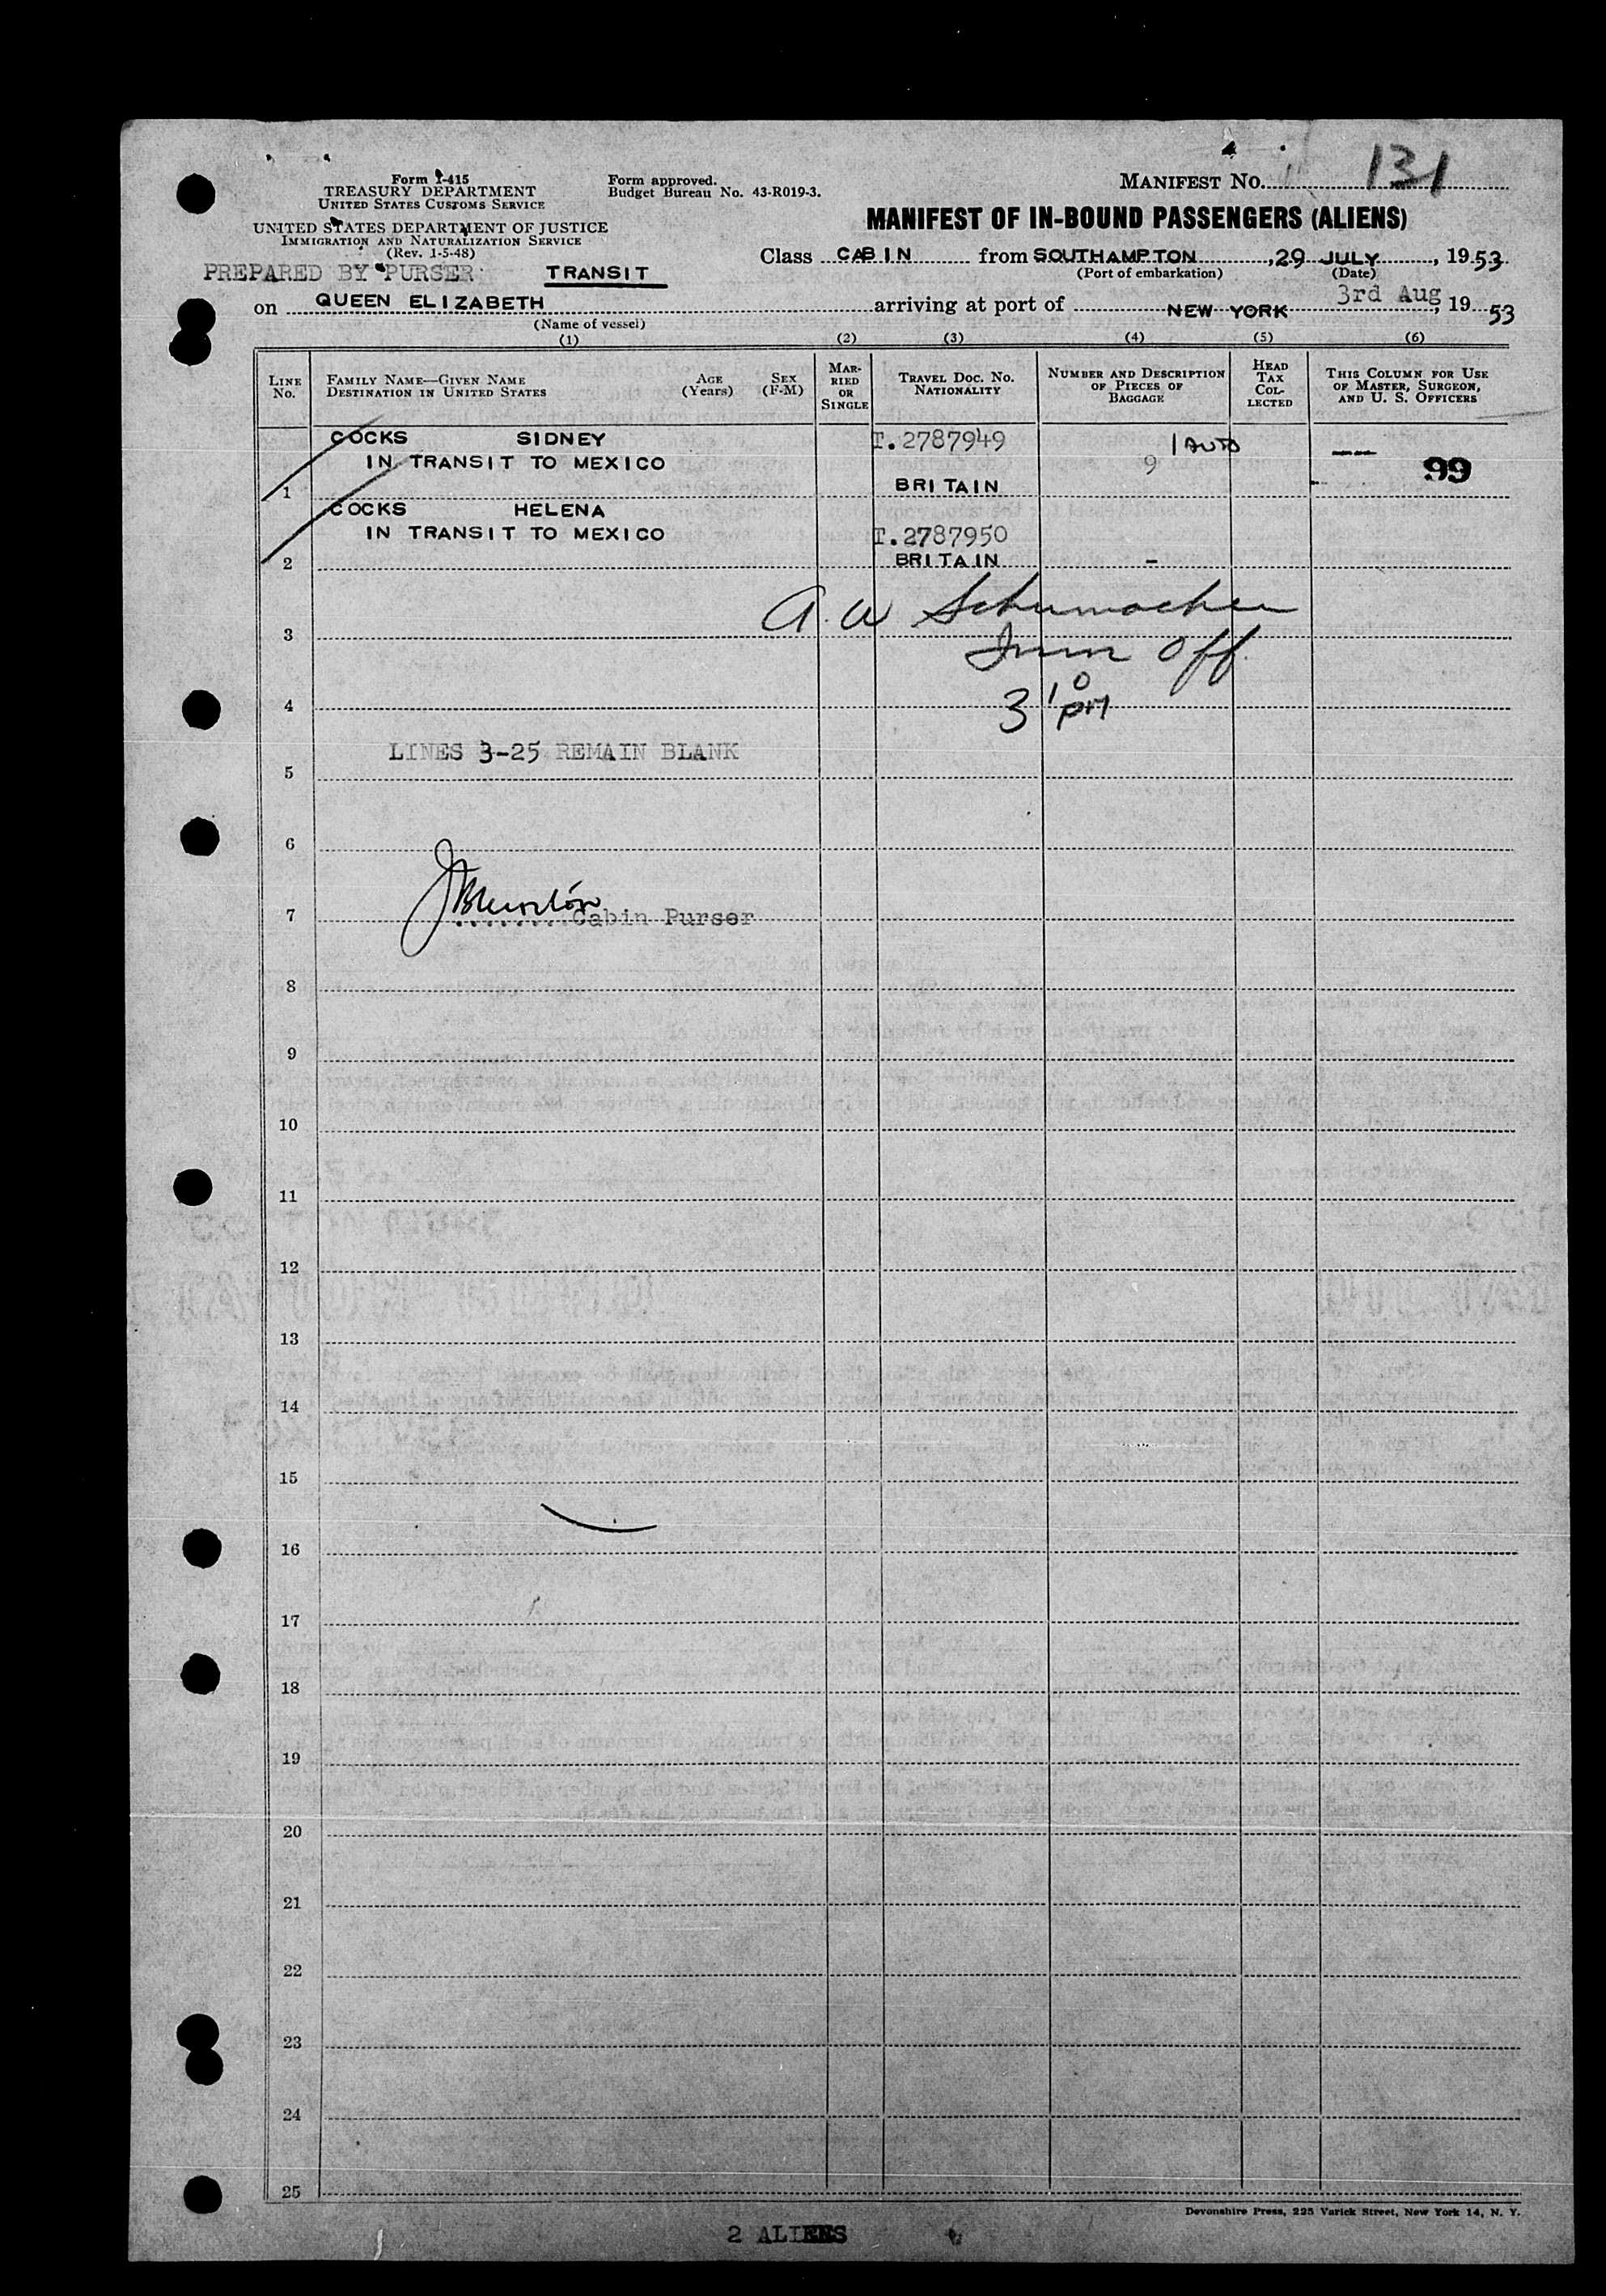 Form I-415
TREASURY DEPARTMENT
UNITED STATES CUSTOMS SERVICE
UNITED STATES DEPARTMENT OF JUSTICE
IMMIGRATION AND NATURALIZATION SERVICE
(Rev. 1-5-48)
PREPARED BY PURSER
TRANSIT
Form approved.
Budget Bureau No. 43-R019-3.
MANIFEST NO. 131
MANIFEST OF IN-BOUND PASSENGERS (ALIENS)
Class CABIN from SOUTHAMPTON, 29 JULY, 1953.
(Port of embarkation) (Date)
on QUEEN ELIZABETH arriving at port of NEW YORK 3rd Aug, 19 53
(Name of vessel)
(1) (2) (3) (4) (5) (6)
LINE NO.
FAMILY NAME—GIVEN NAME
DESTINATION IN UNITED STATES
AGE (Years)
SEX (F-M)
MARRIED OR SINGLE
TRAVEL DOC. NO.
NATIONALITY
NUMBER AND DESCRIPTION OF PIECES OF BAGGAGE
HEAD TAX COLLECTED
THIS COLUMN FOR USE OF MASTER, SURGEON, AND U. S. OFFICERS
COCKS SIDNEY T.2787949 1 AUTO
IN TRANSIT TO MEXICO 9 --- 99
1 BRITAIN
COCKS HELENA
IN TRANSIT TO MEXICO T.2787950
2 BRITAIN -
A. W Schumacher
3
Imm Off.
4 3 10 PM
LINES 3-25 REMAIN BLANK
5
6
7 ........Cabin Purser
8
9
10
11
12
13
14
15
16
17
18
19
20
21
22
23
24
25
Devonshire Press, 225 Varick Street, New York 14, N. Y.
2 ALIENS